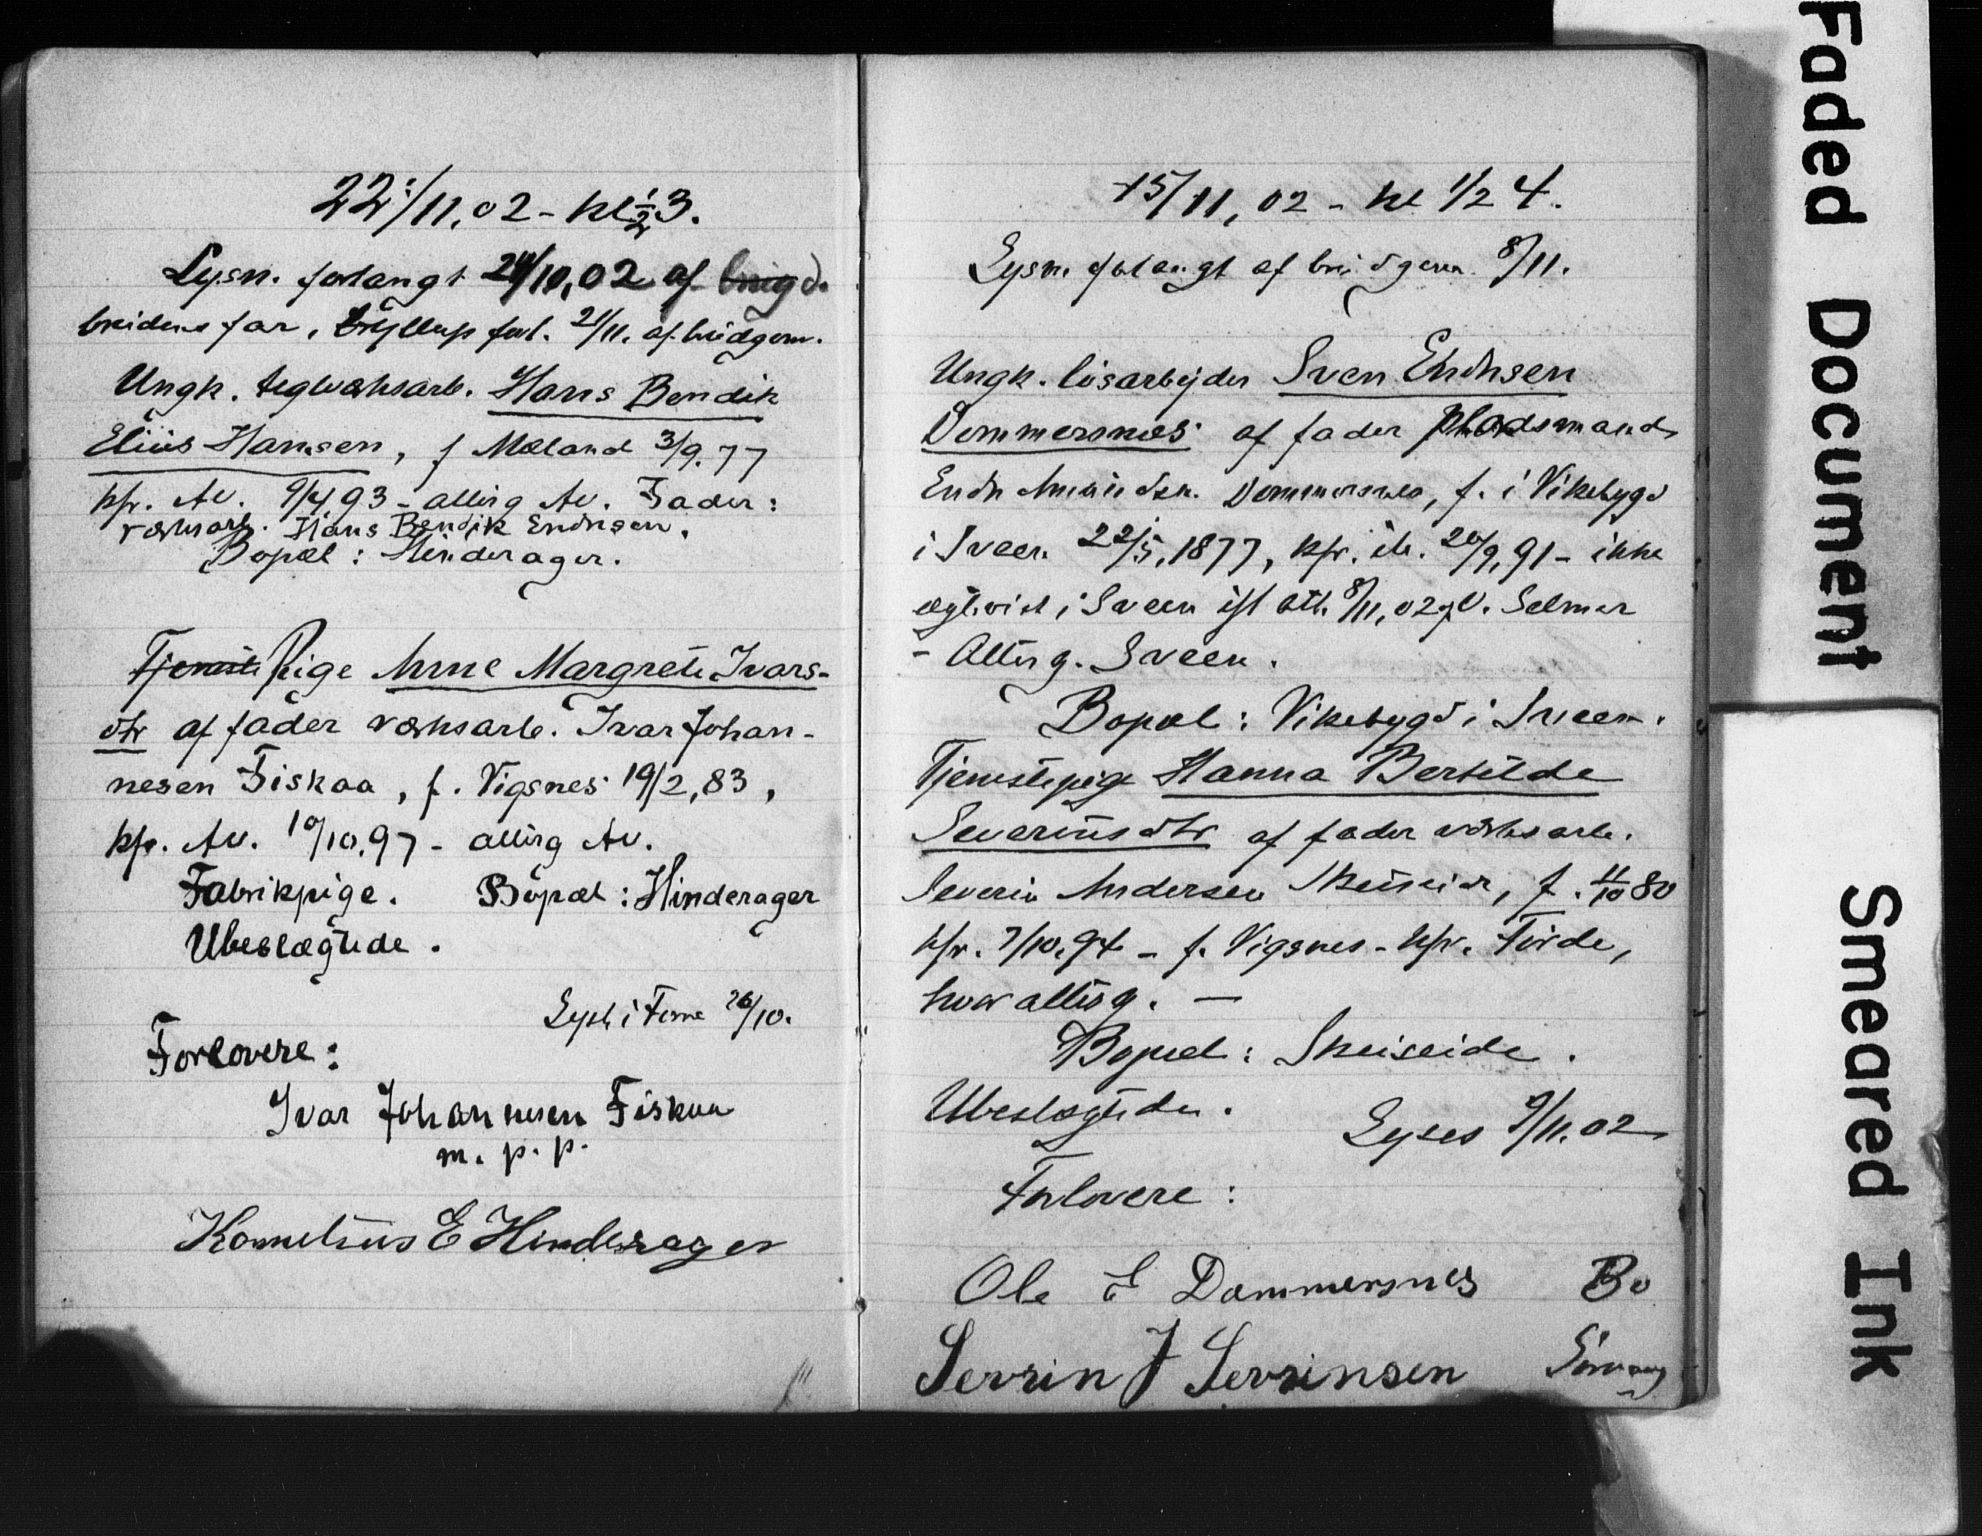 22/11, 02 - kl ½ 3.
Lysn. forlangt 24/10, 02 af brigd.
brudens far. Bryllup forl. 21/11. af brudgom.
Ungk. teglværksarb. Hans Bendik
Elius Hansen, f Mæland 3/9. 77
kfr. Av. 9/4 93 - altErg Av. Fader:
værksarb. Hans Bendik Endresen.
Bopæl: Hinderager.
Tjeneste Pige Anne Margrete Ivars-
dtr af fader værksarb. Ivar Johan-
nesen Fiskaa, f. Vigsnes 19/2, 83,
kfr. Av. 10/10, 97 - altErg Av.
Fabrikpige. Bopæl: Hinderager
Ubeslægtede.
Lyst i Ferne 26/10.
Forlovere:
Ivar Johannesen Fiskaa
m. p. p.
Kornelius E Hinderager
15/11, 02 - kl 1/2 4.
Lysn. forlangt af brudgom. 8/11.
Ungk. løsarbejder Sven Endresen
Dommersnes af fader pladsmand
Endr. Amundsen. Dommersnes, f. i Vikebygd
i Sveen 22/5, 1877, kfr. 20/9, 91 - ikke
ægteviet i Sveen ifl att. 8/11, 02 Selmer
- Alterg. Sveen.
Bopæl: Vikebygd i Sveen.
Tjenestepige Hanna Bertilde
Severinsdtr af fader værksarb.
Severin Andersen Skeiseid, f. 11/10 80
kfr. 7/10. 94 - f. Vigsnes - kfr. Førde,
hvor alterg. —
Bopæl: Skeiseide.
Ubeslægtede.
Lyses 9/11. 02
Forlovere:
Ole E Dommersnes Bo
Sevrin J Sevrinsen
Faded Document
Smeared Ink